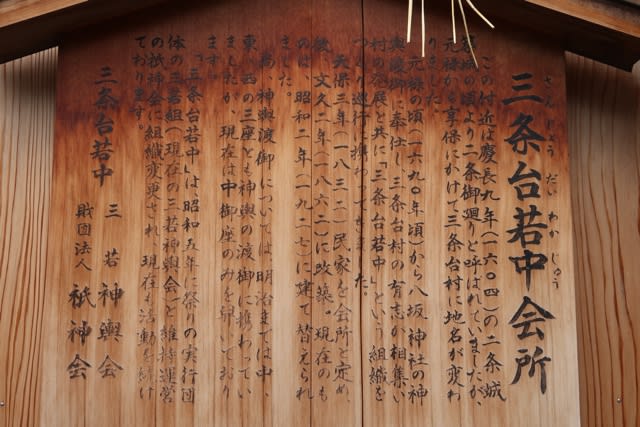 三条台若中会所
さんじょうだいわかじゅう
この付近は慶長九年(一六〇四)の二条城
築城の頃より二条御廻りと呼ばれていましたが、
元禄から享保にかけて三条台村に地名が変わ
りました
元禄の頃(一六九〇年頃)から八坂神社の神
輿渡御に奉仕し、三条台村の有志が相集い
村の発展と共に「三条台若中」という組織を
つくり巡行に携わってきました。
天保三年(一八三二)民家を会所と定め、
文久二年(一八六二)に改築。現在のも
のは、昭和二年(一九二七)に建て替えられ
ました。
尚、神輿渡御については、明治までは中、
東、西の三座とも神輿の渡御に携わってい
ましたが、現在は中御座のみを舁いており
ます。
「三条台若中」は昭和五年に祭りの実行団
体の三若組(現在の三若神輿会)と維持運営
の祇神会に組織変更され、現在も活動を続け
ております。
三条台若中
三若神輿会
財団法人 祇神会